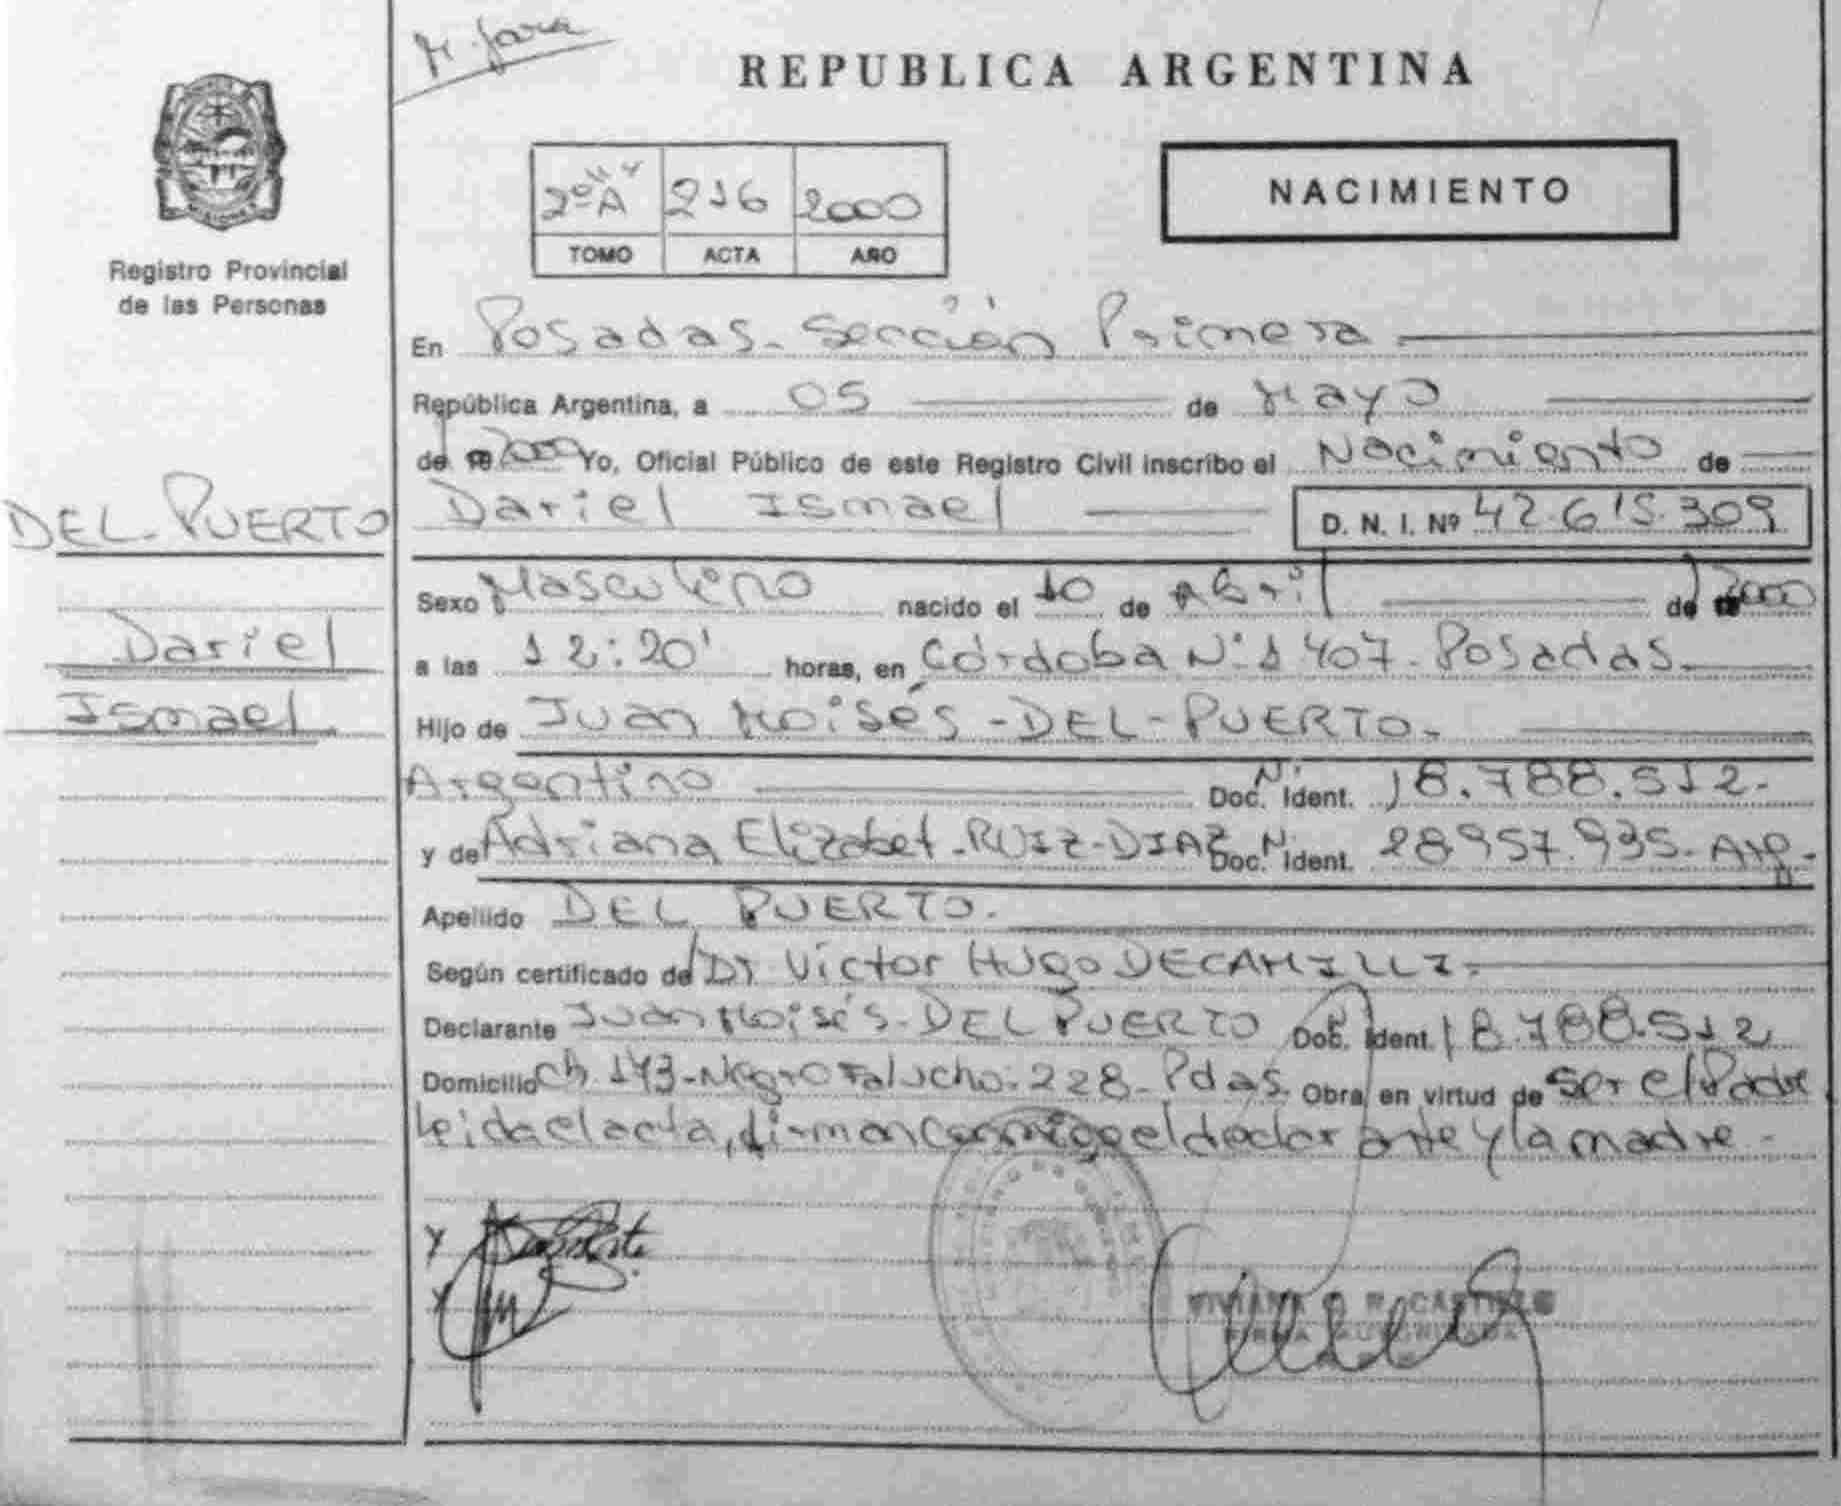 M. Jara
REPUBLICA ARGENTINA
2º "A" 216 2000
TOMO ACTA AÑO
NACIMIENTO
Registro Provincial
de las Personas
En Posadas. Sección Primera
República Argentina, a 05 de Mayo
de 2000 Yo, Oficial Público de este Registro Civil inscribo el Nacimiento de
DEL PUERTO
Dariel Ismael D. N. I. Nº 42.615.309
Sexo Masculino nacido el 10 de Abril de 2000
Dariel
a las 12:20' horas, en Córdoba Nº 1407. Posadas.
Ismael
Hijo de Juan Moisés - DEL - PUERTO.
Argentino Doc. Nº Ident. 18.788.512.
y de Adriana Elizabet - RUIZ - DIAZ Doc. Nº Ident. 28957.935. Arg.
Apellido DEL PUERTO.
Según certificado del Dr Víctor Hugo DECAMILLI.
Declarante Juan Moisés - DEL PUERTO Doc. Ident. 18.788.512
Domicilio Ch 143 - Negro Falucho - 228 - Pdas. Obra en virtud de Ser el Padre
Leida el acta, firman conmigo el declarante y la madre -
VIVIANA R. CASTELO
FIRMA AUTORIZADA